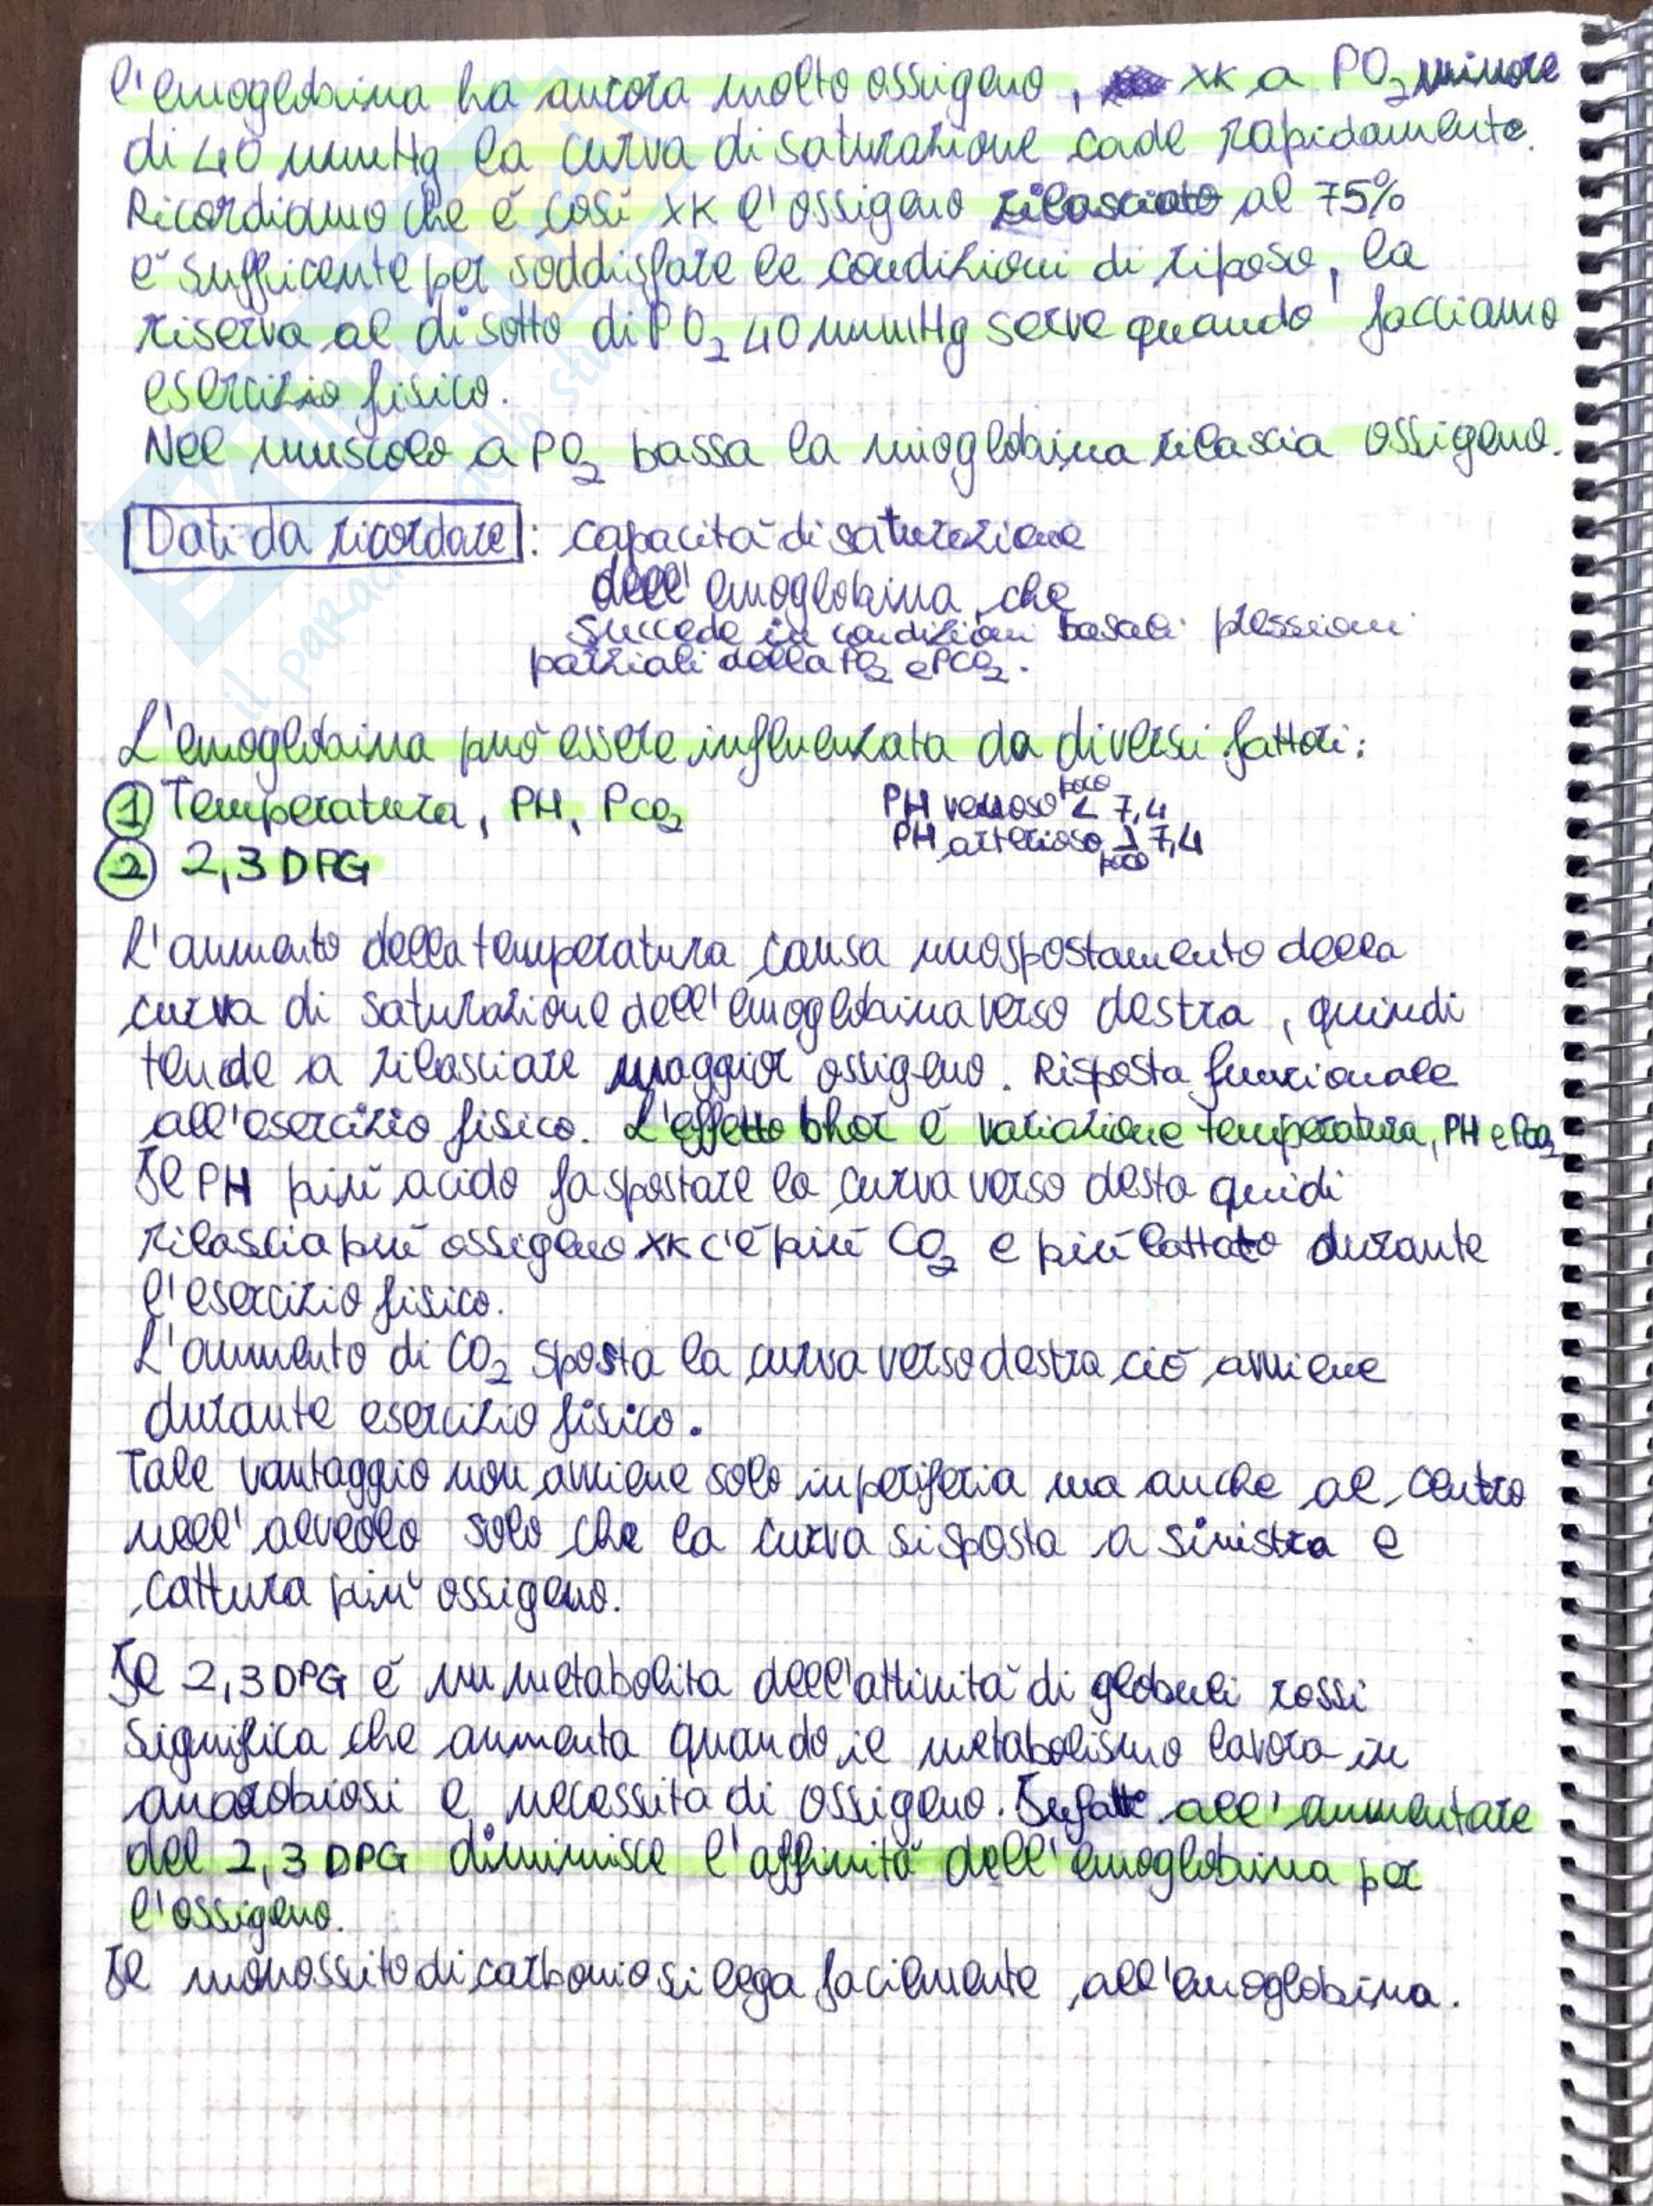 l'emoglobina ha ancora molto ossigeno, xk a PO2 minore
di 40 mmHg la curva di saturazione cade rapidamente.
Ricordiamo che è così xk l'ossigeno rilasciato al 75%
è sufficente per soddisfare le condizioni di riposo, la
riserva al di sotto di PO2 40 mmHg serve quando facciamo
esercizio fisico.
Nel muscolo a PO2 bassa la mioglobina rilascia ossigeno.
Dati da ricordare: capacità di saturazione
dell'emoglobina, che
succede in condizioni basali pressioni
parziali della PO2 e PCO2.
L'emoglobina può essere influenzata da diversi fattori:
1 Temperatura, PH, PCO2
PH venoso poco < 7,4
PH arterioso poco > 7,4
2 2,3 DPG
L'aumento della temperatura causa uno spostamento della
curva di saturazione dell'emoglobina verso destra, quindi
tende a rilasciare maggior ossigeno. Risposta funzionale
all'esercizio fisico. L'effetto bhor è variazione temperatura, PH e PCO2
Il PH più acido fa spostare la curva verso desta quidi
rilascia più ossigeno xk c'è più CO2 e più lattato durante
l'esercizio fisico.
L'aumento di CO2 sposta la curva verso destra ciò avviene
durante esercizio fisico.
Tale vantaggio non avviene solo in periferia ma anche al centro
nell'alveolo solo che la curva si sposta a sinistra e
cattura più ossigeno.
Il 2,3 DPG è un metabolita dell'attività di globuli rossi
significa che aumenta quando il metabolismo lavora in
anaerobiosi e necessita di ossigeno. Infatti all'aumentare
del 2,3 DPG diminuisce l'affinità dell'emoglobina per
l'ossigeno.
Il monossito di carbonio si lega facilmente all'emoglobina.